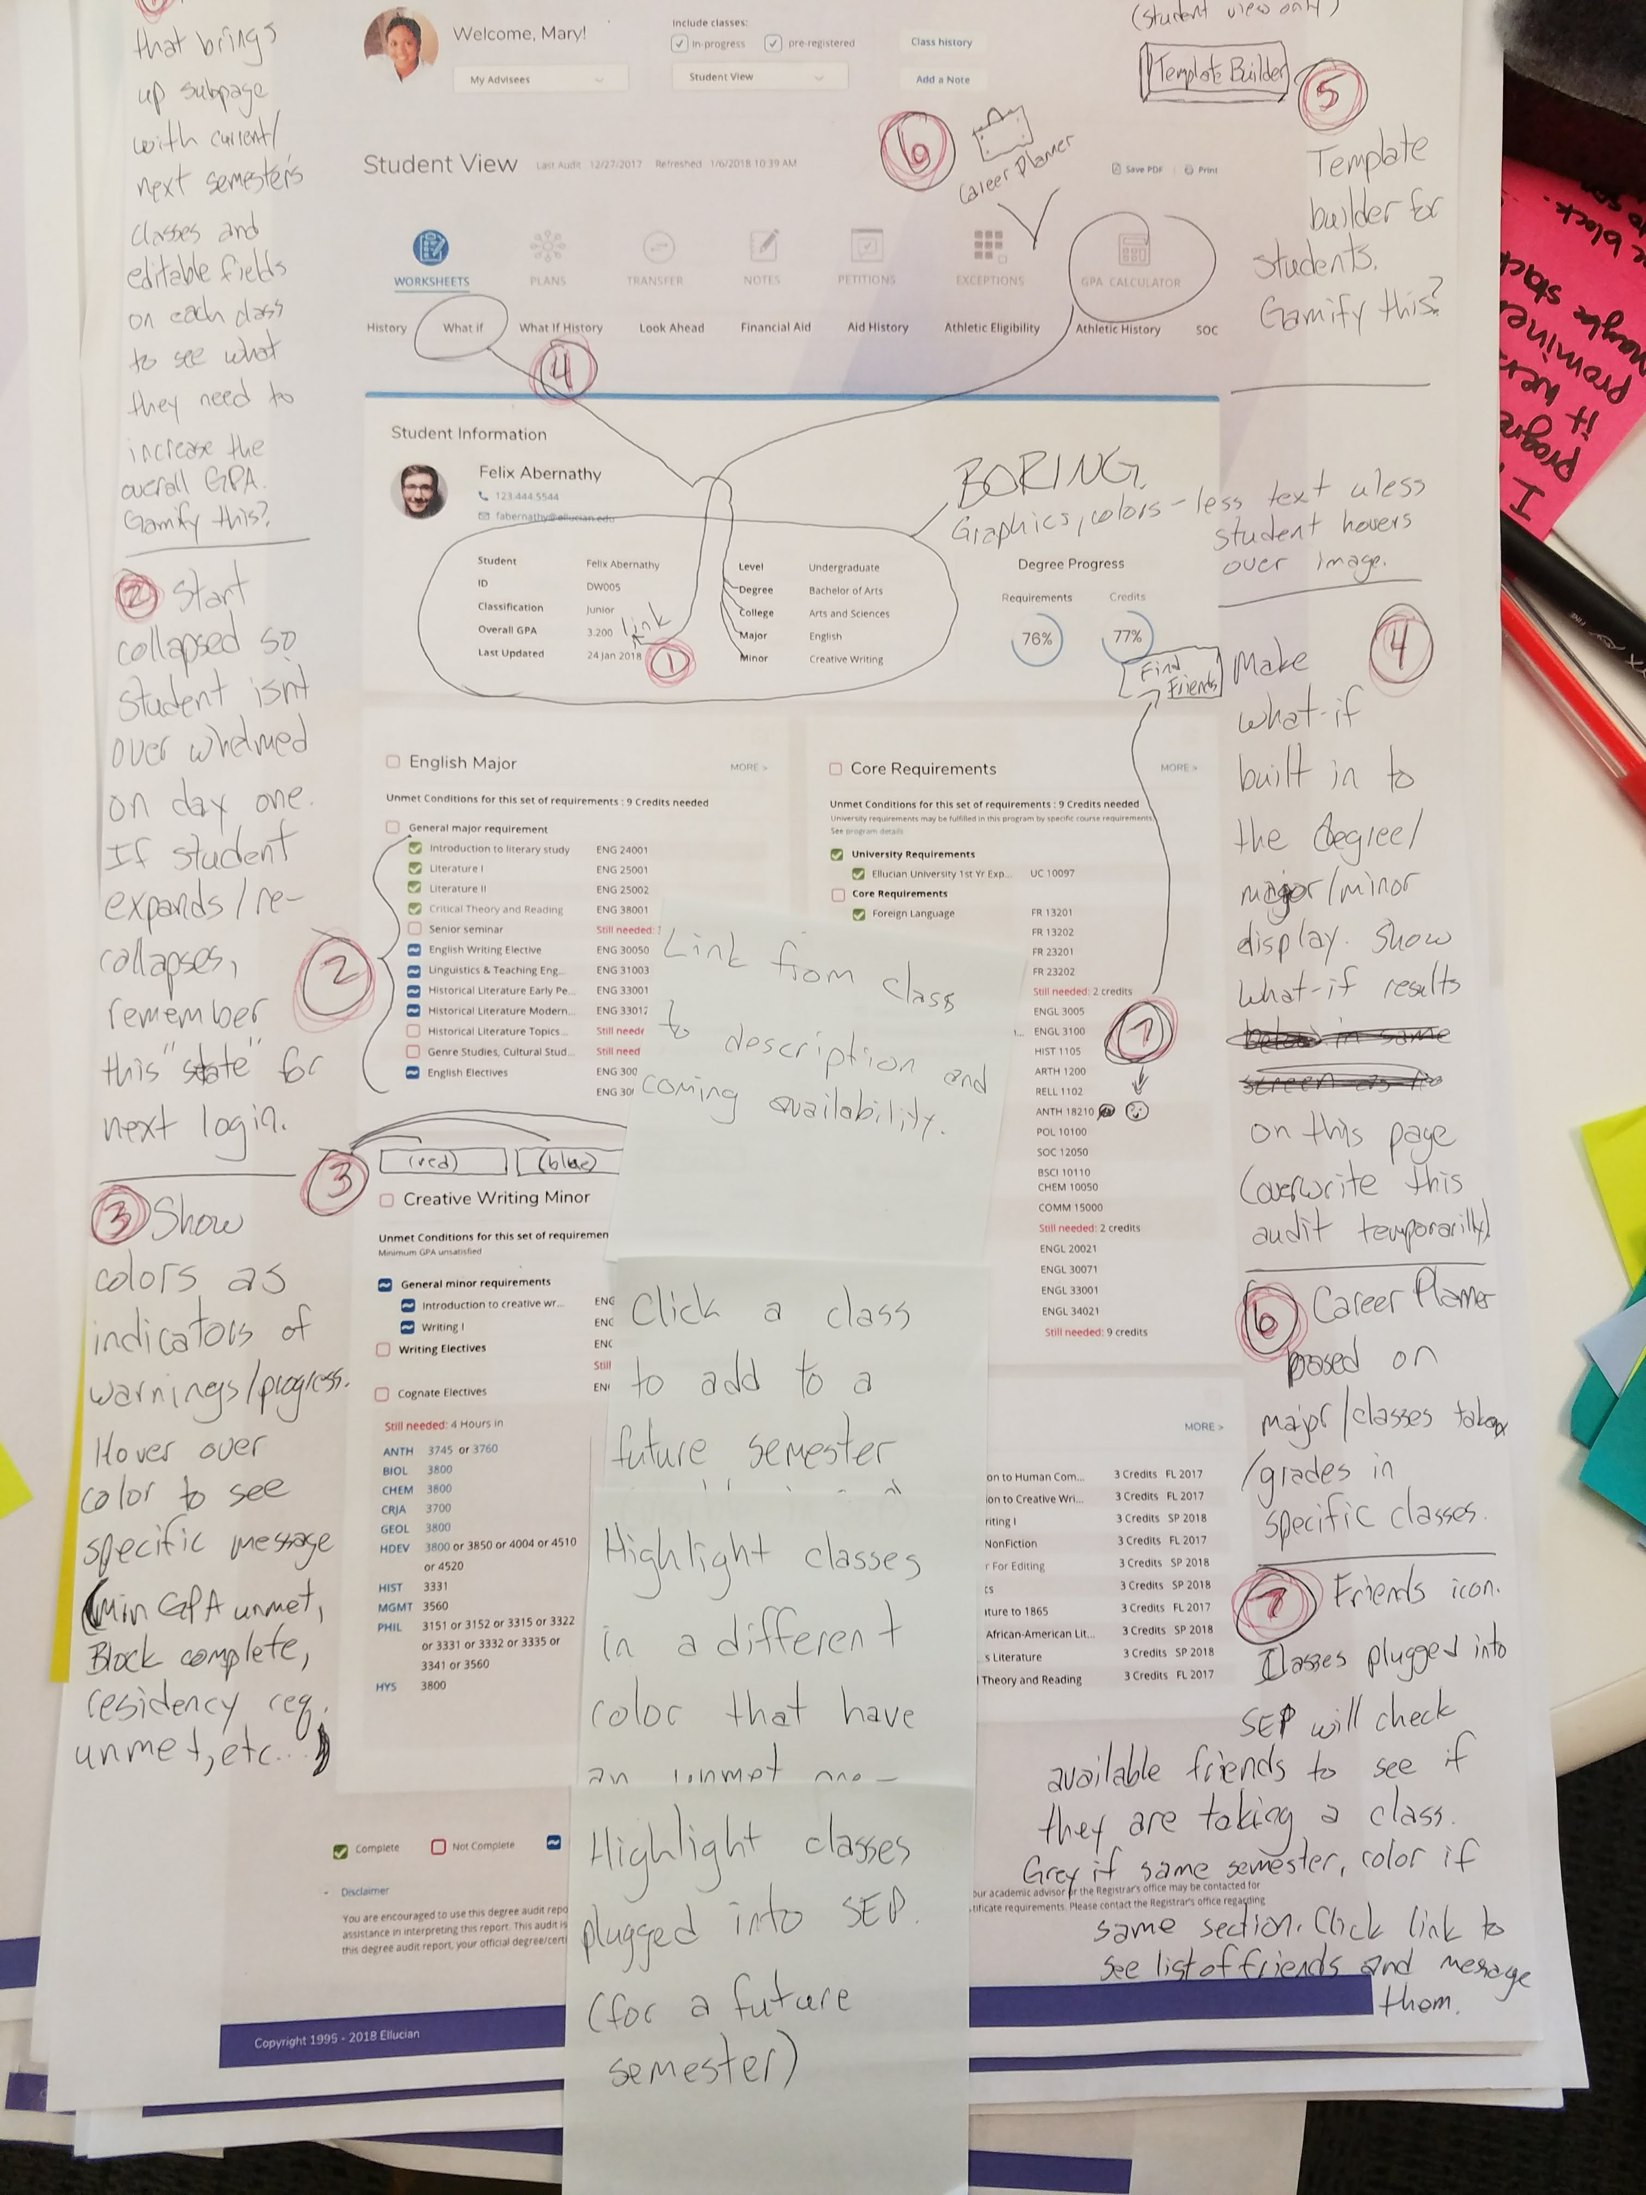 that brings
up subpage
with current/
next semester's
classes and
editable fields
on each class
to see what
they need to
increase the
overall GPA.
Gamify this?
② Start
collapsed so
student isn't
over whelmed
on day one.
If student
expands/re-
collapses,
remember
this "state" for
next login.
③ Show
colors as
indicators of
warnings/progress.
Hover over
color to see
specific message
(Min GPA unmet,
Block complete,
residency req.
unmet, etc...)
Welcome, Mary!
My Advisees
Include classes:
In-progress pre-registered
Student View
Class history
Add a Note
(student view only)
Template Builder
⑤
Template
builder for
students.
Gamify this?
⑥
Career Planner
Student View Last Audit 12/27/2017 Refreshed 1/6/2018 10:39 AM
Save PDF Print
WORKSHEETS PLANS TRANSFER NOTES PETITIONS EXCEPTIONS GPA CALCULATOR
History What if What If History Look Ahead Financial Aid Aid History Athletic Eligibility Athletic History SOC
④
Student Information
Felix Abernathy
123.444.5544
fabernathy@ellucian.edu
BORING.
Graphics, colors - less text uless
student hovers
over image.
Student Felix Abernathy
ID DW005
Classification Junior
Overall GPA 3.200
Last Updated 24 Jan 2018
link
①
Level Undergraduate
Degree Bachelor of Arts
College Arts and Sciences
Major English
Minor Creative Writing
Degree Progress
Requirements Credits
76% 77%
Find
Friends
④
Make
what-if
built in to
the degree/
major/minor
display. Show
what-if results
on this page
(overwrite this
audit temporarily)
⑥ Career Planner
based on
major/classes taken
/grades in
specific classes.
⑦ Friends icon.
Classes plugged into
SEP will check
available friends to see if
they are taking a class.
Grey if same semester, color if
same section. Click link to
see list of friends and message
them.
English Major MORE >
Unmet Conditions for this set of requirements : 9 Credits needed
General major requirement
Introduction to literary study ENG 24001
Literature I ENG 25001
Literature II ENG 25002
Critical Theory and Reading ENG 38001
Senior seminar Still needed:
English Writing Elective ENG 30050
Linguistics & Teaching Eng... ENG 31003
Historical Literature Early Pe... ENG 33001
Historical Literature Modern... ENG 33017
Historical Literature Topics... Still need
Genre Studies, Cultural Stud... Still need
English Electives ENG 300
ENG 30
②
③
(red) (blue)
Creative Writing Minor
Unmet Conditions for this set of requiremen
Minimum GPA unsatisfied
General minor requirements
Introduction to creative wr... ENG
Writing I ENG
Writing Electives ENG
Still
Cognate Electives EN
Still needed: 4 Hours in
ANTH 3745 or 3760
BIOL 3800
CHEM 3800
CRJA 3700
GEOL 3800
HDEV 3800 or 3850 or 4004 or 4510
or 4520
HIST 3331
MGMT 3560
PHIL 3151 or 3152 or 3315 or 3322
or 3331 or 3332 or 3335 or
3341 or 3560
HYS 3800
Core Requirements MORE >
Unmet Conditions for this set of requirements : 9 Credits needed
University requirements may be fulfilled in this program by specific course requirements.
See program details
University Requirements
Ellucian University 1st Yr Exp... UC 10097
Core Requirements
Foreign Language FR 13201
FR 13202
FR 23201
FR 23202
Still needed: 2 credits
ENGL 3005
ENGL 3100
HIST 1105
ARTH 1200
RELL 1102
ANTH 18210
POL 10100
SOC 12050
BSCI 10110
CHEM 10050
COMM 15000
Still needed: 2 credits
ENGL 20021
ENGL 30071
ENGL 33001
ENGL 34021
Still needed: 9 credits
⑦
Link from class
to description and
coming availability.
Click a class
to add to a
future semester
Highlight classes
in a different
color that have
an unmet
Highlight classes
plugged into SEP.
(for a future
semester)
MORE >
on to Human Com... 3 Credits FL 2017
ion to Creative Wri... 3 Credits FL 2017
riting I 3 Credits SP 2018
NonFiction 3 Credits FL 2017
r For Editing 3 Credits SP 2018
ts 3 Credits SP 2018
ature to 1865 3 Credits FL 2017
African-American Lit... 3 Credits SP 2018
s Literature 3 Credits SP 2018
Theory and Reading 3 Credits FL 2017
Complete Not Complete
Disclaimer
You are encouraged to use this degree audit repo
assistance in interpreting this report. This audit is
this degree audit report, your official degree/certi
our academic advisor or the Registrar's office may be contacted for
tificate requirements. Please contact the Registrar's office regarding
Copyright 1995 - 2018 Ellucian